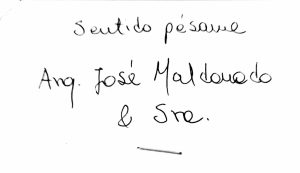 Sentido pésame
Arq. José Maldonado
& Sra.